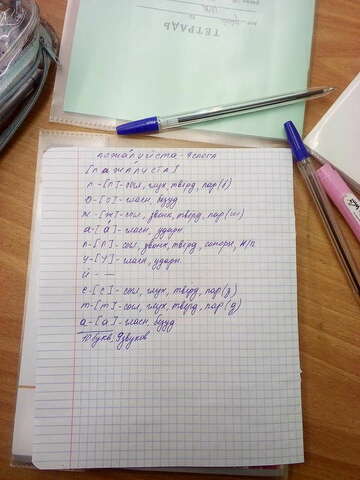 ТЕТРАДЬ
пожа́луйста - 4 слога
[пажалуста]
п - [п] - согл, глух, тверд, пар (б)
о - [о] - гласн, безуд
ж - [ж] - согл, звонк, тверд, пар (ш)
а - [а́] - гласн, ударн.
л - [л] - согл, звонк, тверд, сонорн, н/п
у - [у] - гласн, ударн.
й - —
с - [с] - согл, глух, тверд, пар (з)
т - [т] - согл, глух, тверд, пар (д)
а - [а] - гласн, безуд
10 букв, 9 звуков